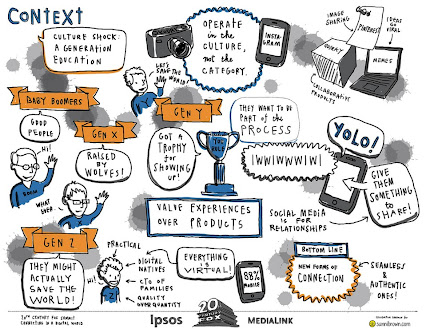 CONTEXT
CULTURE SHOCK:
A GENERATION
EDUCATION
OPERATE
in the
CULTURE,
not the
CATEGORY.
INSTA
GRAM
IMAGE
SHARING
PINTEREST
IDEAS
GO
VIRAL
QUIRKY
MEMES
COLLABORATIVE
PRODUCTS
LET'S
SAVE THE
WORLD!
BABY BOOMERS
GOOD
PEOPLE
HI!
BOOM
GEN X
RAISED
BY
WOLVES!
WHAT
EVER
GEN Y
GOT A
TROPHY
for
SHOWING
UP!
YOU
RULE
THEY WANT TO BE
PART of the
PROCESS
IWWIWWWIWI
YOLO!
GIVE
THEM
SOMETHING
to
SHARE!
SOCIAL MEDIA
IS FOR
RELATIONSHIPS
VALUE EXPERIENCES
OVER PRODUCTS
GEN Z
THEY MIGHT
ACTUALLY
SAVE THE
WORLD!
HI!
PRACTICAL
DIGITAL
NATIVES
CTO OF
FAMILIES
QUALITY
OVER QUANTITY
EVERYTHING
IS
VIRTUAL!
88%
MOBILE
BOTTOM LINE
NEW FORMS of
CONNECTION
SEAMLESS
&
AUTHENTIC
ONES!
20TH CENTURY FOX SUMMIT
CONNECTING IN A DIGITAL WORLD
Ipsos
20TH
CENTURY
FOX
MEDIALINK
sunnibrown.com